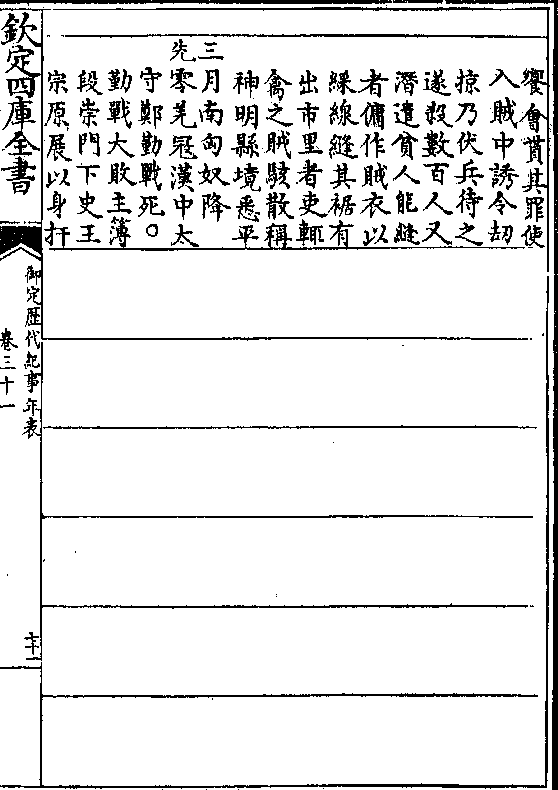 饗㑹貰其罪使
入賊中誘令刧
掠乃伏兵待之
遂殺數百人又
潛遣貧人能縫
者傭作賊衣以
綵線縫其裾有
出市里者吏輙
禽之賊駭散稱
神明縣境悉平
三月南匈奴降
先零羌冦漢中太
守鄭勤戰死○
勤戰大敗主簿
段崇門下史王
宗原展以身扞
欽定四庫全書
御定歴代紀事年表
卷三十一